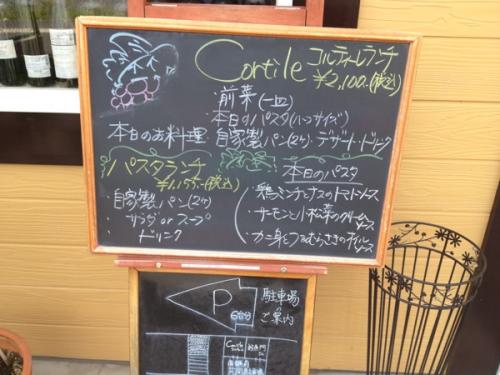 Cortile コルティーレランチ
¥2,100.(税込)
・前菜(一皿)
・本日のパスタ(ハーフサイズ)
自家製パン(2ケ)・デザート・ドリンク
本日のお料理
パスタランチ
¥1,175.(税込)
・自家製パン(2ケ)
・サラダorスープ
・ドリンク
本日のパスタ
・鶏ミンチとナスのトマトソース
・サーモンと小松菜のクリームソース
・カニ身と
ソース
P
6台分
駐車場
ご案内